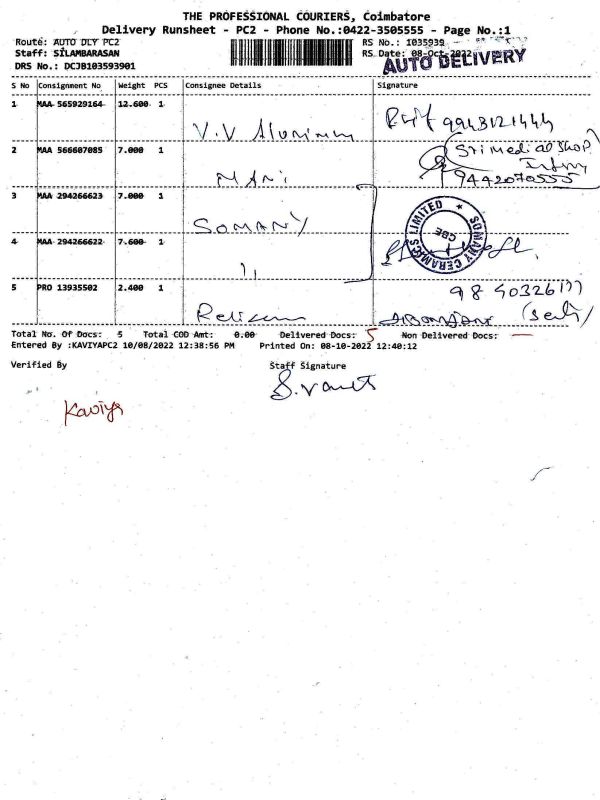 THE PROFESSIONAL COURIERS, Coimbatore
Delivery Runsheet - PC2 - Phone No.:0422-3505555 - Page No.:1
Route: AUTO DLY PC2
Staff: SILAMBARASAN
DRS No.: DCJB103593901
RS No.: 1035939
RS Date: 08-Oct-2022
AUTO DELIVERY
S No Consignment No Weight PCS Consignee Details Signature
1 MAA 565929164 12.600 1 V.V Aluminum 9943121444
2 MAA 566607085 7.000 1 MANi Sri Medical Shop 9442070555
3 MAA 294266623 7.000 1 SOMANY
SOMANY CERAMICS LIMITED
CBE
4 MAA 294266622 7.600 1 11
5 PRO 13935502 2.400 1
Total No. Of Docs: 5 Total COD Amt: 0.00 Delivered Docs: 5 Non Delivered Docs: —
Entered By :KAVIYAPC2 10/08/2022 12:38:56 PM Printed On: 08-10-2022 12:40:12
Verified By Staff Signature
Kaviya